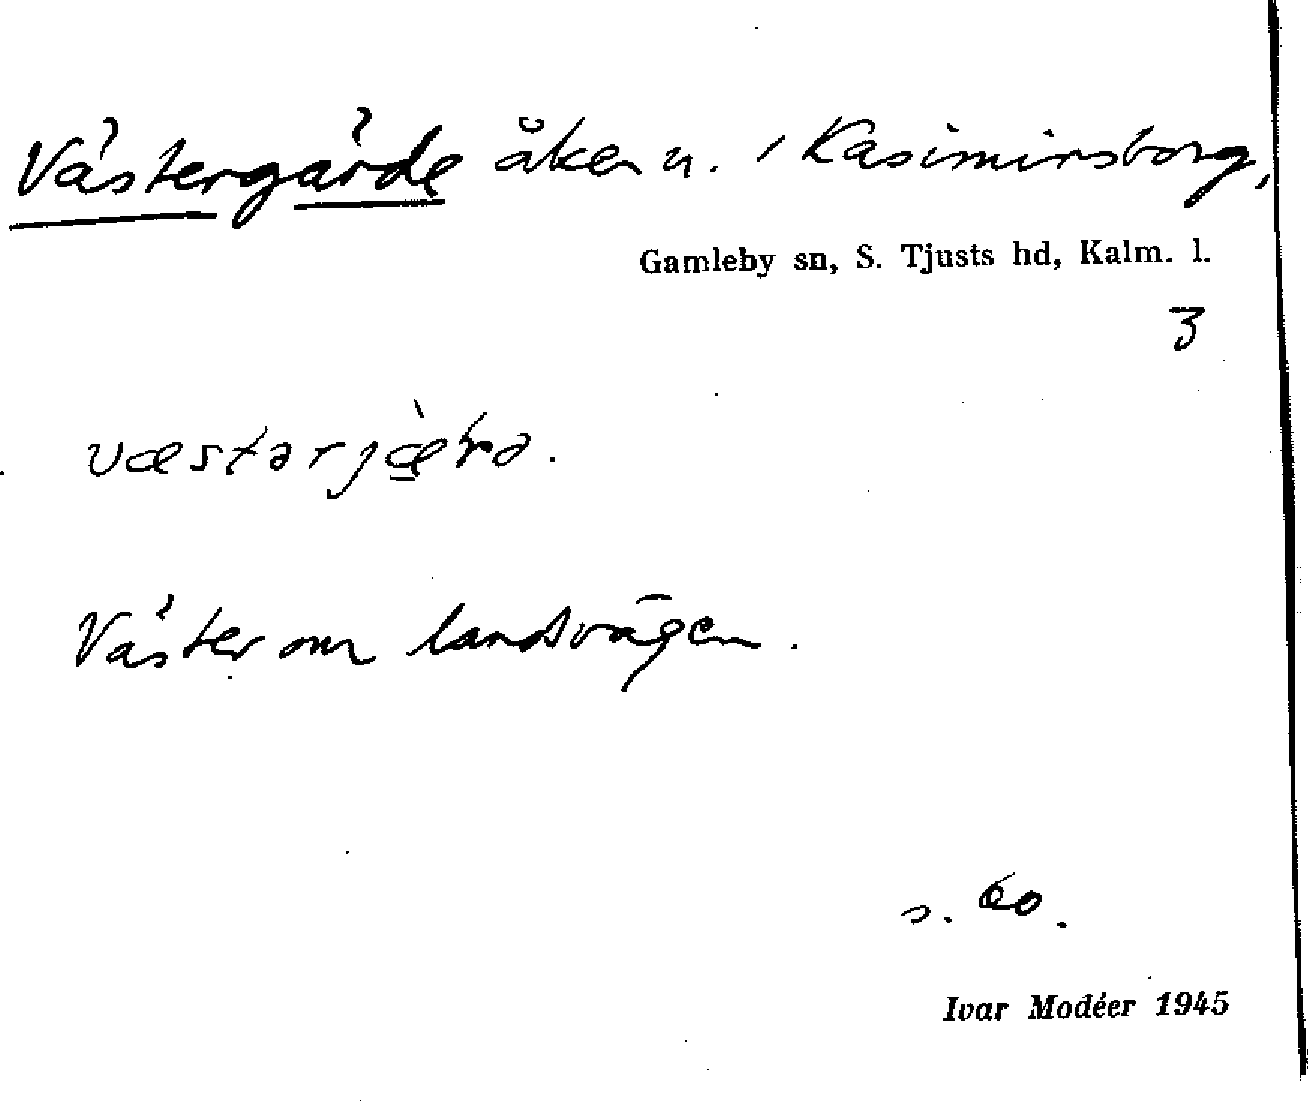 Västergärde åker n. i Kasimirsborg,
Gamleby sn, S. Tjusts hd, Kalm. l.
3
Väster om landsvägen.
s. 60.
Ivar Modéer 1945